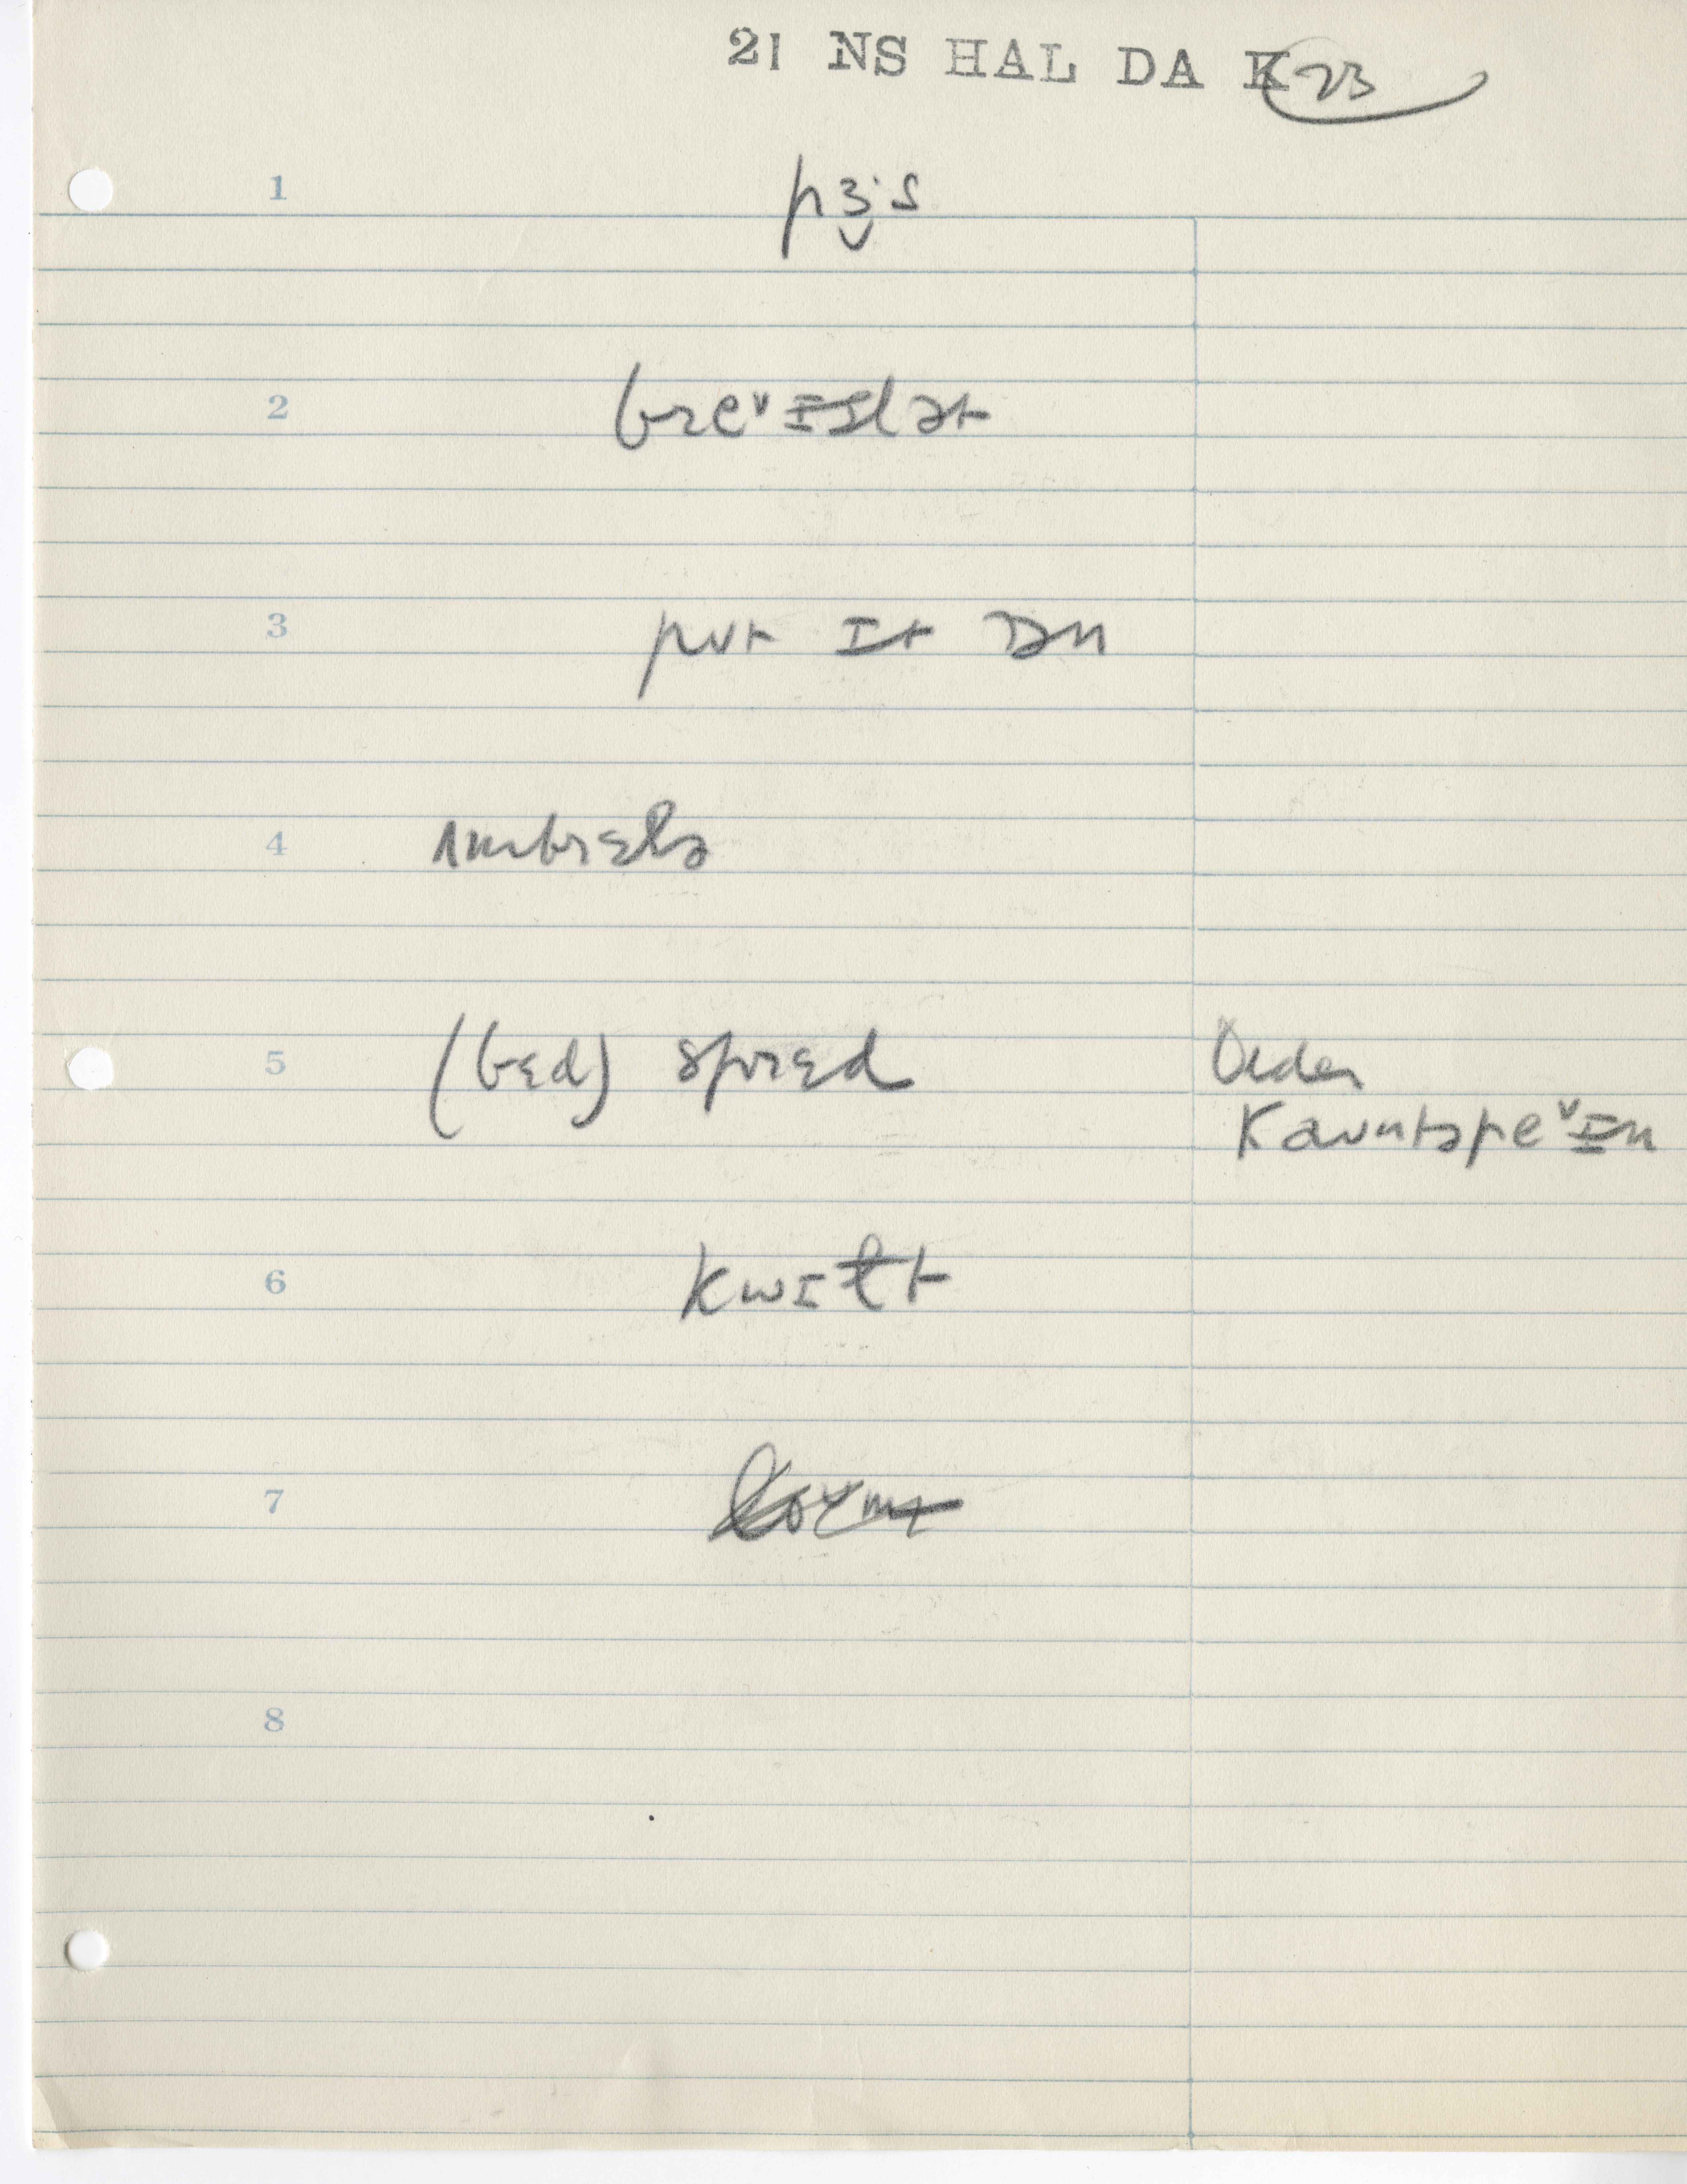 21 NS HAL DA K 23
1 pɜ˞·s
2 breᵛɪslət
3 pʊt ɪt ɒn
4 ʌmbrɛlə
5 (bɛd) sprɛd Older
kaʊntəpeᵛɪn
6 kwɪɫt
7
8